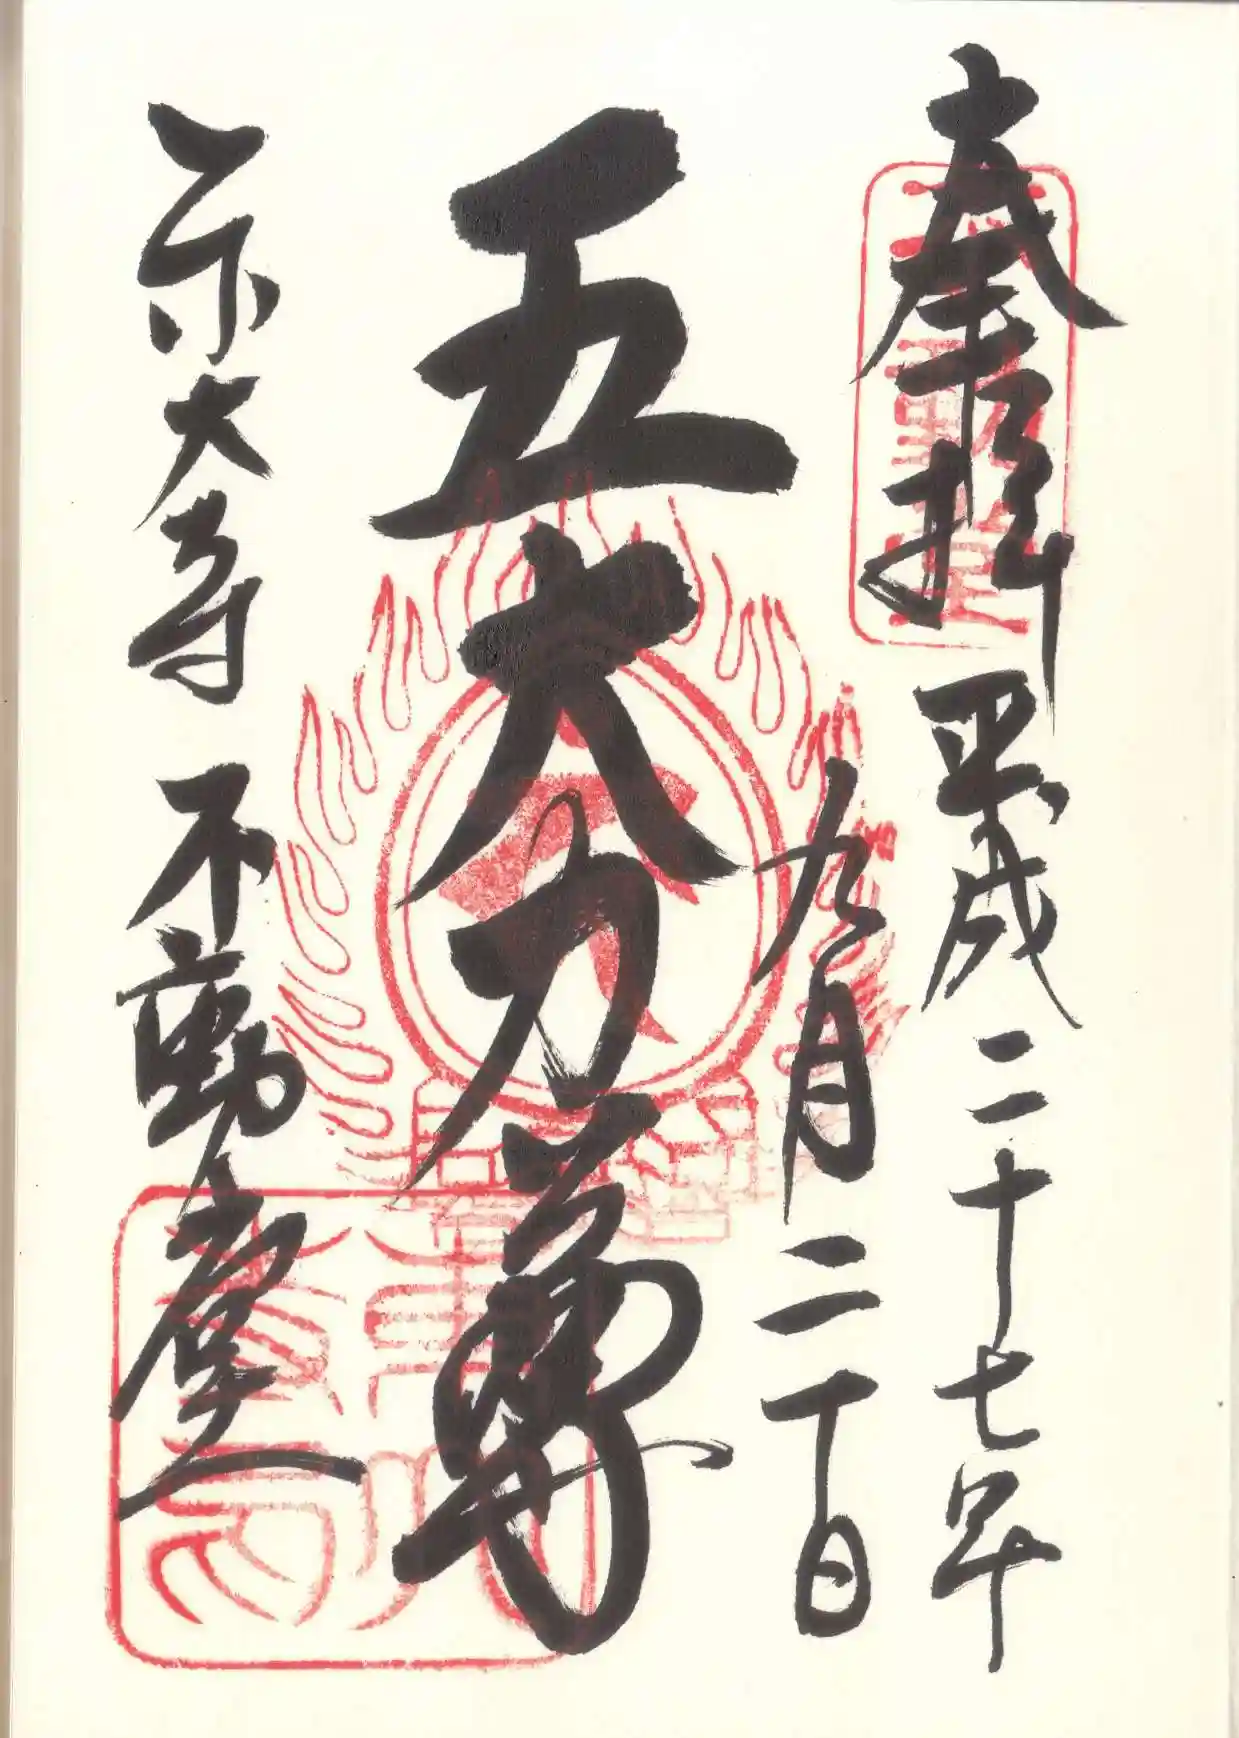 奉拝 平成二十七年
九月二十日
五大力尊
大寺 不動堂